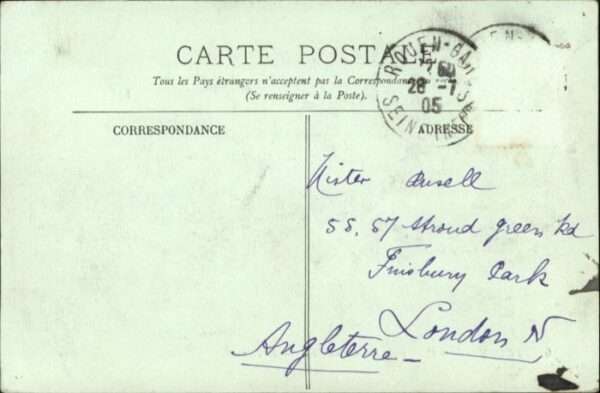 CARTE POSTALE
Tous les Pays étrangers n'acceptent pas la Correspondance
(Se renseigner à la Poste).
ROUEN-GARE
28 -7
05
SEINE-INFRE
CORRESPONDANCE
ADRESSE
Mister Ansell
55, 57 Stroud Green Rd
Finsbury Park
London N
Angleterre